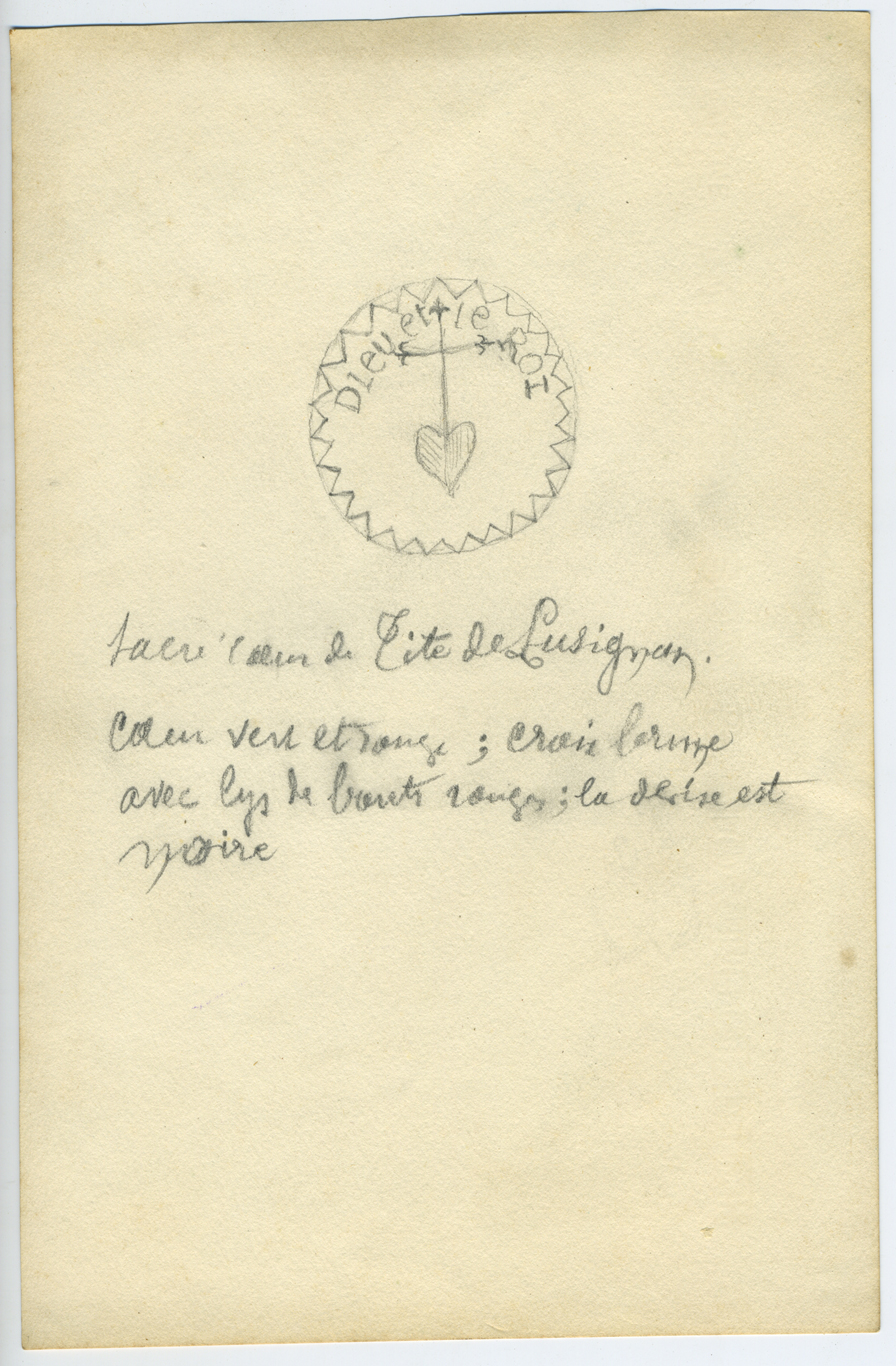 Dieu et le ROI
Sacré Cœur de Tite de Lusignan.
Cœur vert et rouge ; croix brune
avec lys de bouts rouges ; la devise est
noire